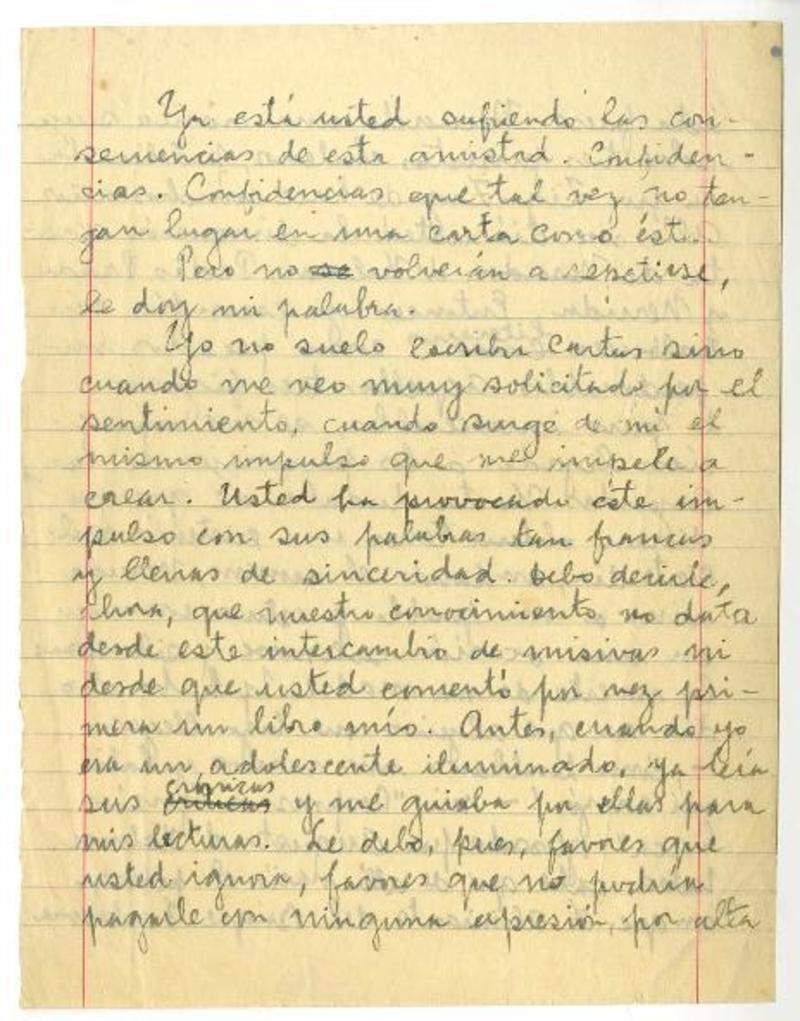 Ya está usted sufriendo las con-
secuencias de esta amistad. Confiden-
cias. Confidencias que tal vez no ten-
gan lugar en una carta como ésta.
Pero no se volverán a repetirse,
le doy mi palabra.
Yo no suelo escribir cartas sino
cuando me veo muy solicitado por el
sentimiento, cuando surge de mi el
mismo impulso que me impele a
crear. Usted ha provocado éste im-
pulso con sus palabras tan francas
y llenas de sinceridad. Debo decirle,
ahora, que nuestro conocimiento no data
desde este intercambio de misivas ni
desde que usted comentó por vez pri-
mera un libro mío. Antes, cuando yo
era un adolescente iluminado, ya leía
crónicas
sus criticas y me guiaba por ellas para
mis lecturas. Le debo, pues, favores que
usted ignora, favores que no podría
pagarle con ninguna expresión, por alta